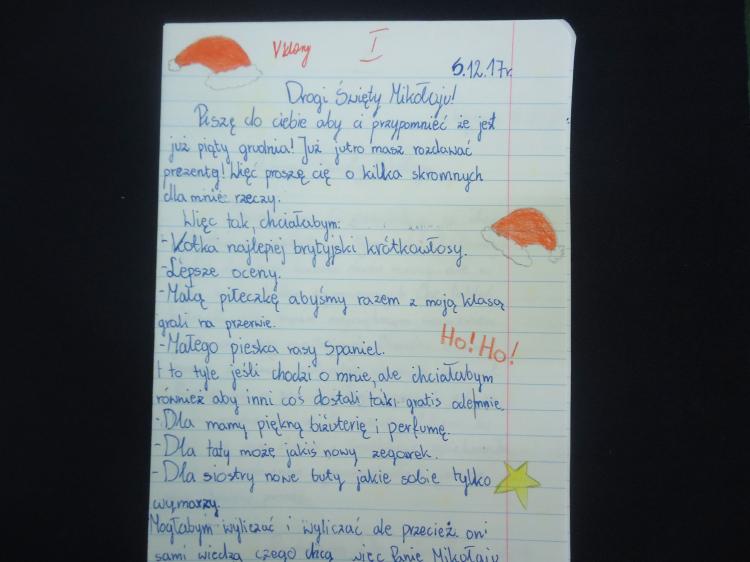 V klasy I
6.12.17r.
Drogi Święty Mikołaju!
Piszę do ciebie aby ci przypomnieć że jest
już piąty grudnia! Już jutro masz rozdawać
prezenty! Więć proszę cię o kilka skromnych
dla mnie rzeczy.
Więc tak, chciałabym:
-Kotka najlepiej brytyjski krótkowłosy.
-Lepsze oceny.
-Małą piłeczkę abyśmy razem z moją klasą
grali na przerwie.
-Małego pieska rasy Spaniel.
Ho! Ho!
I to tyle jeśli chodzi o mnie, ale chciałabym
również aby inni coś dostali taki gratis odemnie.
-Dla mamy piękną biżuterię i perfumę.
-Dla taty możę jakiś nowy zegarek.
-Dla siostry nowe buty jakie sobie tylko
wymarzy.
Mogłabym wyliczać i wyliczać ale przecież oni
sami wiedzą czego chcą więc Panie Mikołaju